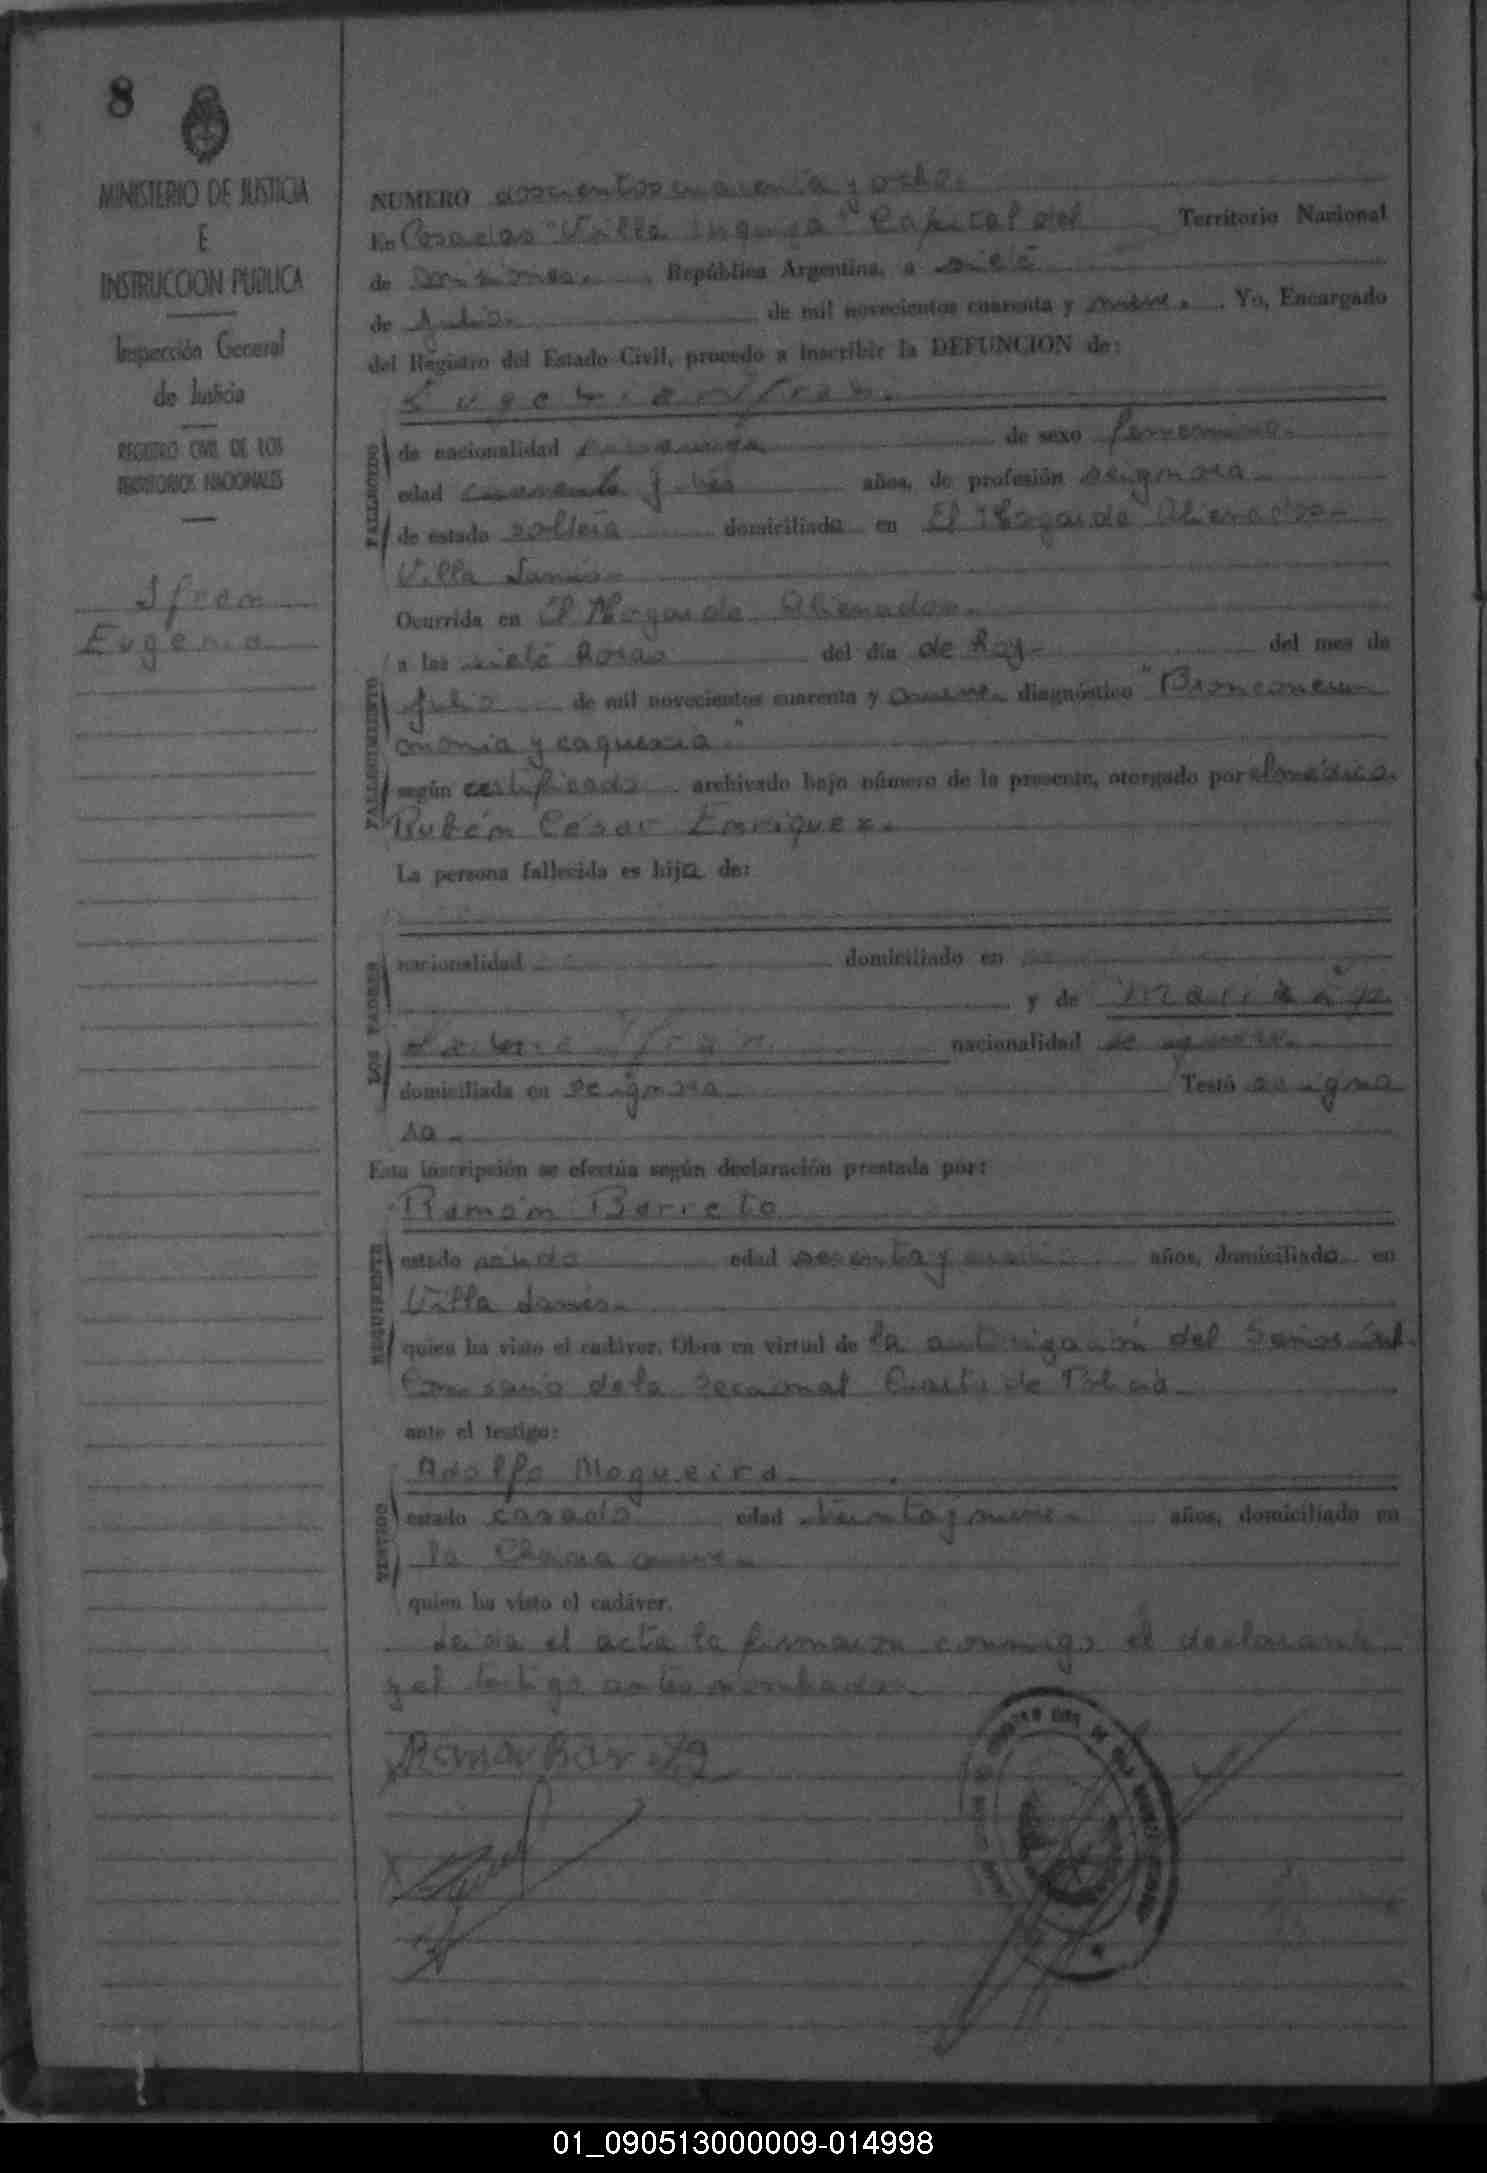 8
MINISTERIO DE JUSTICIA
E
INSTRUCCION PUBLICA
Inspección General
de Justicia
REGISTRO CIVIL DE LOS
TERRITORIOS NACIONALES
Ifran
Eugenia
NUMERO doscientos cuarenta y ocho.
En Posadas "Villa Urquiza" Capital del Territorio Nacional
de Misiones. República Argentina, a siete
de Julio. de mil novecientos cuarenta y nueve. Yo, Encargado
del Registro del Estado Civil, procedo a inscribir la DEFUNCION de:
Eugenia Ifran.
FALLECIDO
de nacionalidad de sexo femenino.
edad cuarenta y tres años, de profesión se ignora
de estado soltera domiciliada en El Hogar de Alienados-
Villa Lanús-
FALLECIMIENTO
Ocurrida en El Hogar de Alienados.
a las siete horas del día de hoy- del mes de
Julio de mil novecientos cuarenta y nueve diagnóstico "Bronconeu
monia y caquexia"
según certificado archivado bajo número de la presente, otorgado por el médico.
Rubén César Enriquez.
La persona fallecida es hija de:
LOS PADRES
nacionalidad domiciliado en
y de
Ifran nacionalidad se ignora.
domiciliada en se ignora Testó se igno
ra.
Esta inscripción se efectúa según declaración prestada por:
Ramón Barreto
REQUIRENTE
estado viudo edad sesenta y años, domiciliado en
Villa Lanús-
quien ha visto el cadáver. Obra en virtud de la autorización del Señor Sub-
Comisario de la Seccional Cuarta de Policia
ante el testigo:
Adolfo Nogueira
TESTIGO
estado casado edad años, domiciliado en
la Chacra
quien ha visto el cadáver.
Leida el acta la firmaron conmigo el declarante
y el testigo antes nombrados.
01_090513000009-014998